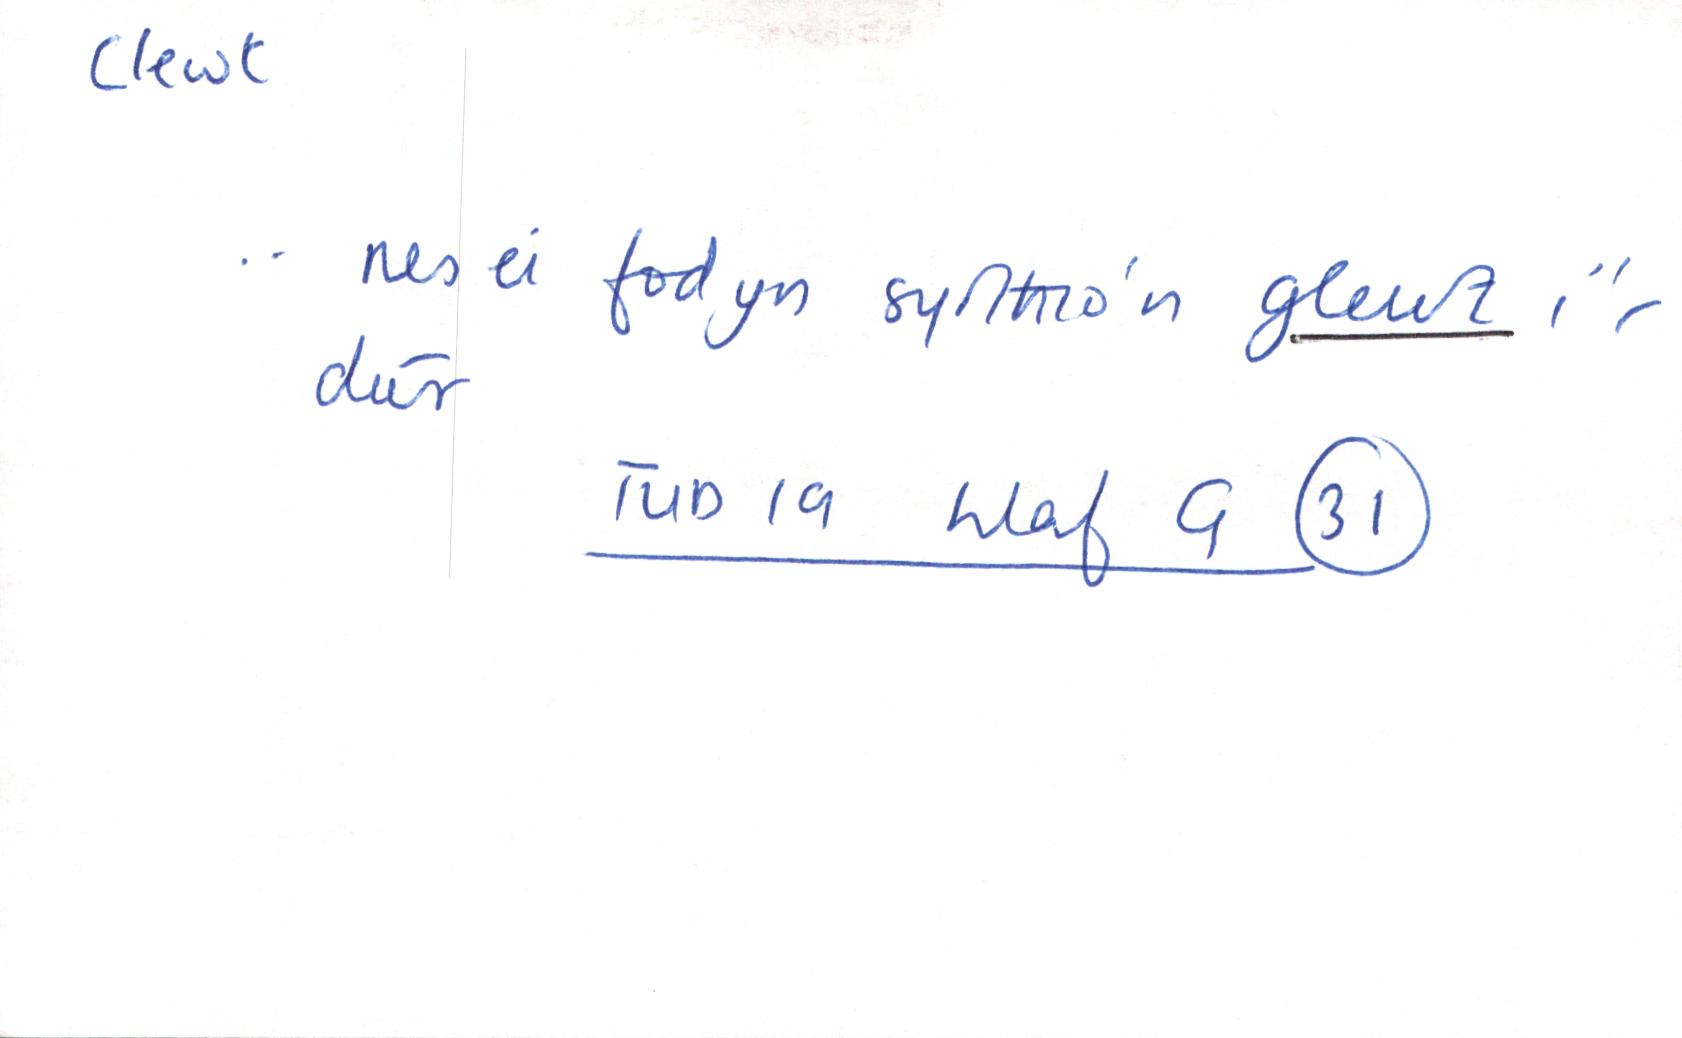 Clewt
.. nes ei fod yn syrthio'n glewt i'r
dŵr
TUD 19 Wlaf G 31